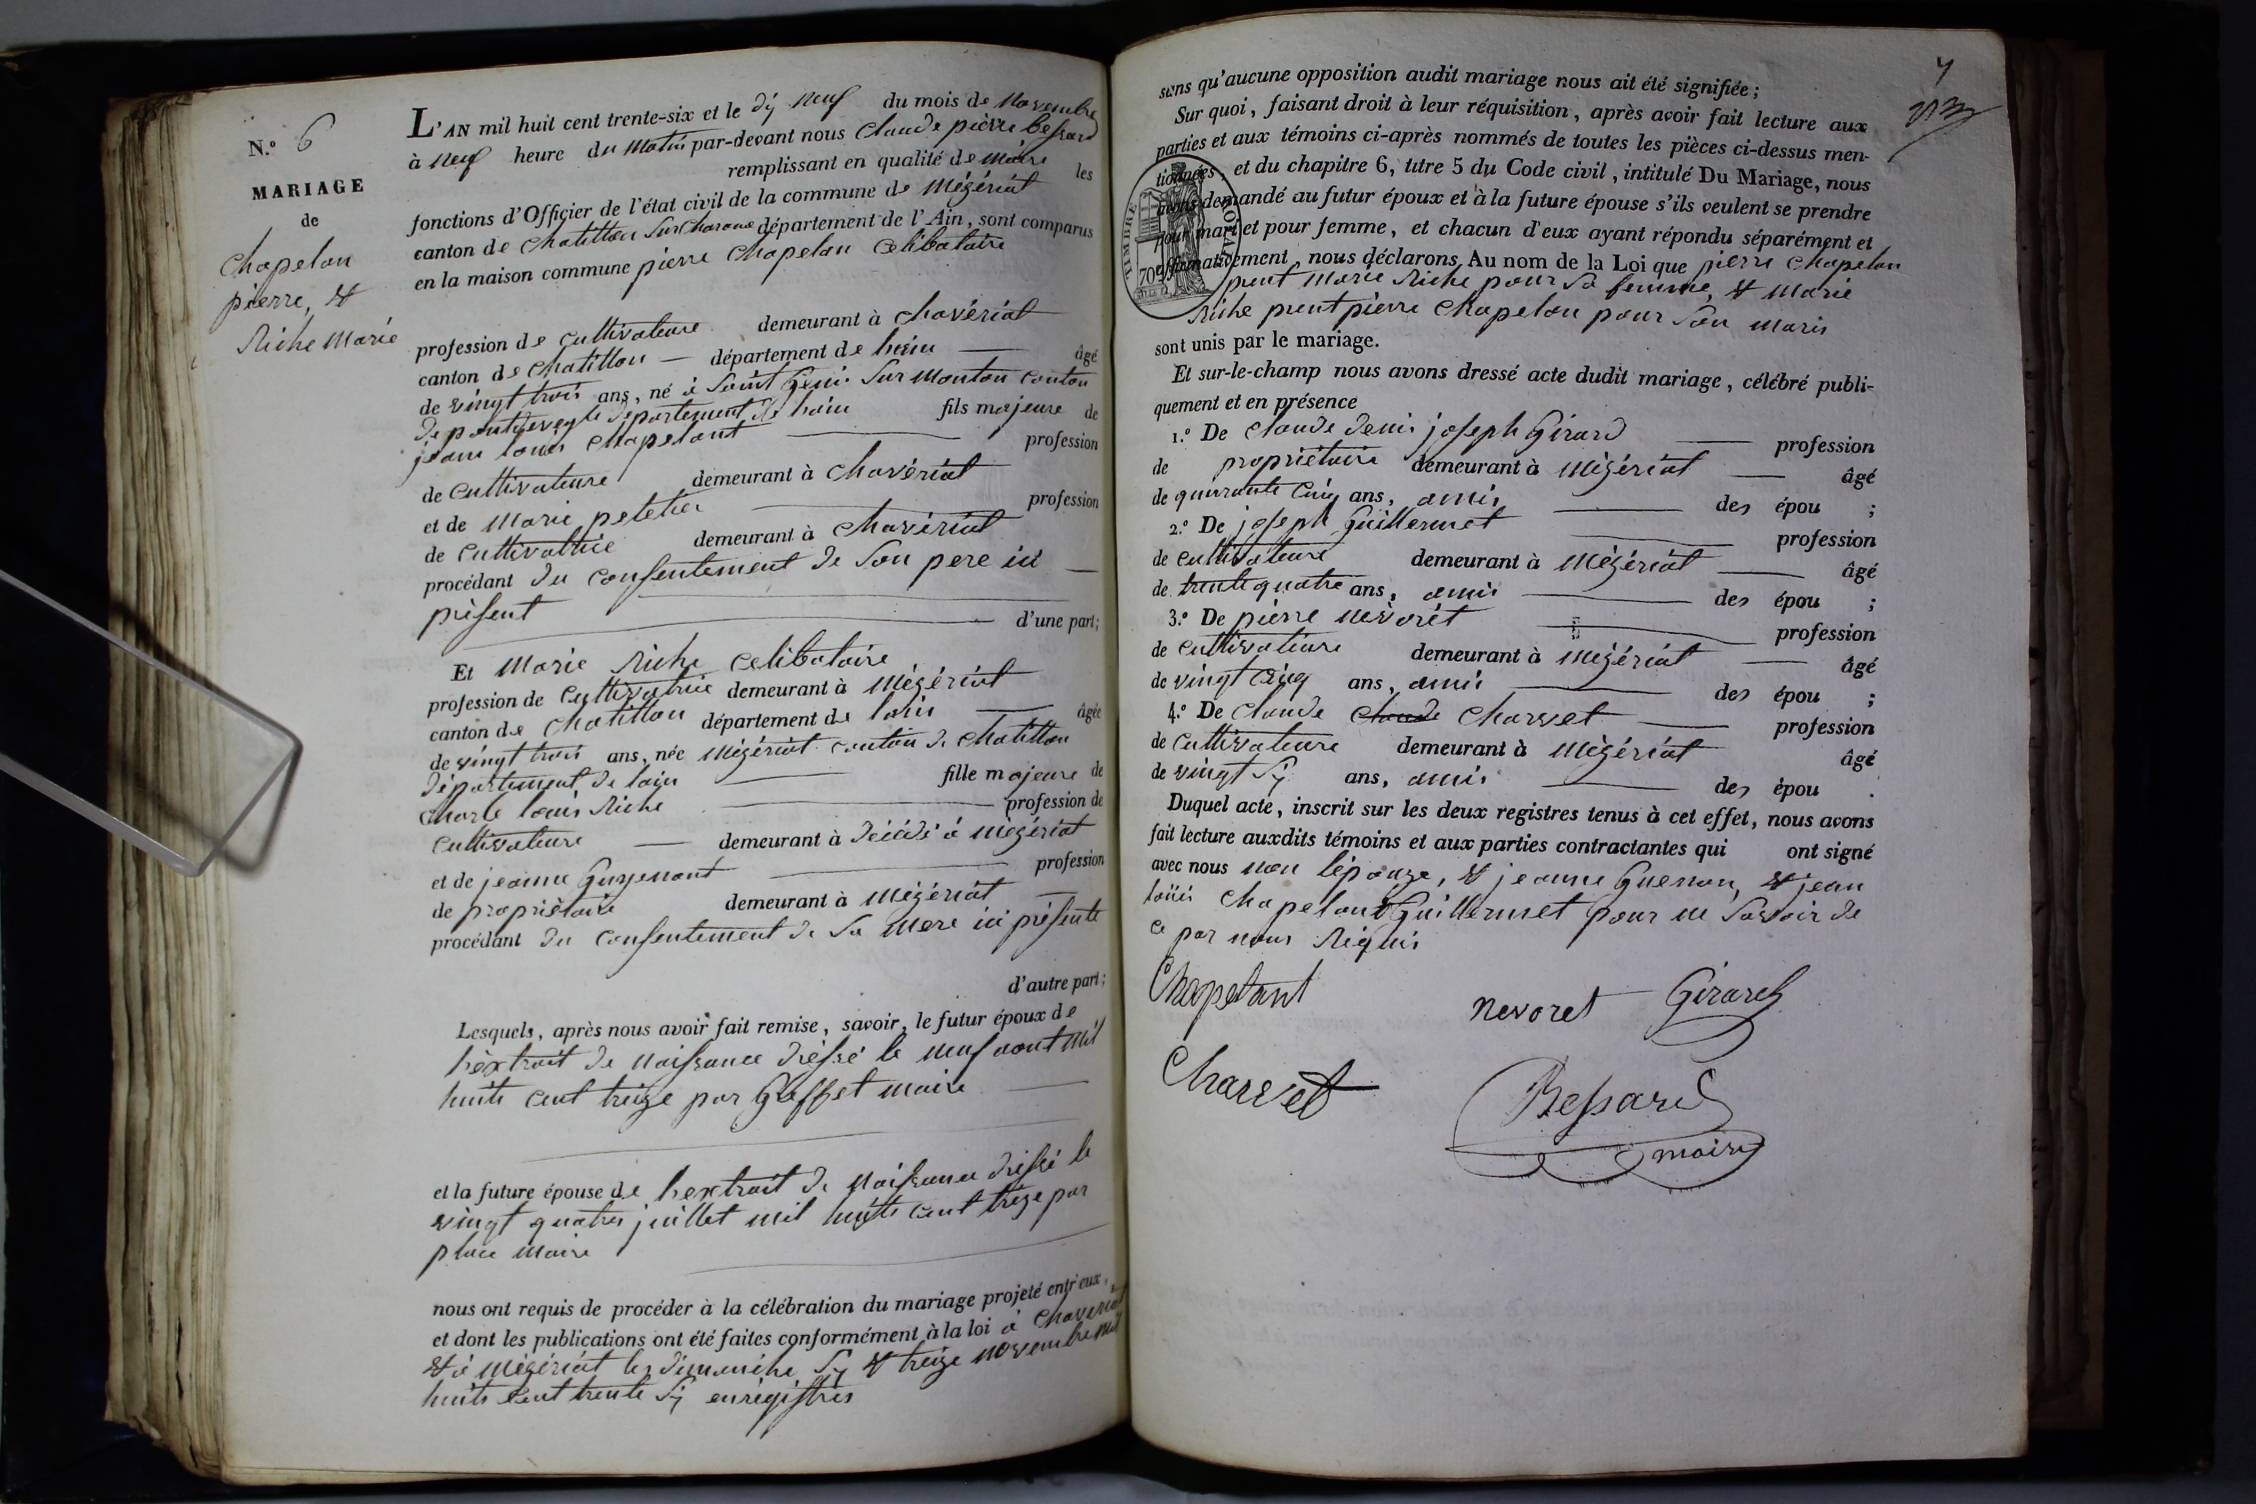 N.º 6
MARIAGE
de
Chapelon
pierre, et
Riche Marie
L'AN mil huit cent trente-six et le dij neuf du mois de Novembre
à neuf heure du matin par-devant nous Claude pierre Bessard
remplissant en qualité de maire les
fonctions d'Officier de l'état civil de la commune de Mézériat
canton de Chatillon sur Charone département de l'Ain, sont comparus
en la maison commune pierre Chapelon Celibataire
profession de Cultivateure demeurant à Chavériat
canton de Chatillon département de lain âgé
de vingt trois ans, né à Saint Geni sur Monton conton
de pontdeveyle département de lain fils majeure de
jean louis Chapelant profession
de Cultivateure demeurant à Chavériat
et de Marie peletier profession
de Cultivatrice demeurant à Chavériat
procédant du Consentement de Son pere ici
présent d'une part;
Et Marie Riche Celibataire
profession de Cultivatrice demeurant à Mézériat
canton de Chatillon département de lain âgée
de vingt trois ans, née Mézériat conton de Chatillon
département de lain fille majeure de
Charle louis Riche profession de
Cultivateure demeurant à décédé à Mézériat
et de jeanne Guyenont profession
de propriétaire demeurant à Mézériat
procédant du Consentement de Sa Mere ici présente
d'autre part;
Lesquels, après nous avoir fait remise, savoir, le futur époux de
lextrait de Naissance dréssé le neuf aout mil
huits cent treize par maire
et la future épouse de lextrait de Naissance dréssé le
vingt quatres juillet mil huits cent trèze par
place maire
nous ont requis de procéder à la célébration du mariage projeté entr'eux,
et dont les publications ont été faites conformément à la loi à Chavériat
et à Mézériat les dimanche Sij et treize novembre mil
huits Cent trente Sij enrégistrés
4
sans qu'aucune opposition audit mariage nous ait été signifiée;
Sur quoi, faisant droit à leur réquisition, après avoir fait lecture aux
parties et aux témoins ci-après nommés de toutes les pièces ci-dessus men-
tionnées, et du chapitre 6, titre 5 du Code civil, intitulé Du Mariage, nous
avons demandé au futur époux et à la future épouse s'ils veulent se prendre
pour mari et pour femme, et chacun d'eux ayant répondu séparément et
affirmativement, nous déclarons Au nom de la Loi que pierre Chapelon
prent Marie Riche pour Sa femme, et Marie
Riche prent pierre Chapelon pour Son maris
sont unis par le mariage.
TIMBRE ROYAL
70
Et sur-le-champ nous avons dressé acte dudit mariage, célébré publi-
quement et en présence
1.º De Claude denis joseph Girard profession
de propriétaire demeurant à Mézériat âgé
de quarante Cinq ans, amis des épou ;
2.º De joseph Guillermet profession
de Cultivateure demeurant à Mézériat âgé
de trente quatre ans, amis des épou ;
3.º De pierre nevorét profession
de Cultivateure demeurant à Mézériat âgé
de vingt Cinq ans, amis des épou ;
4.º De Claude Claude Charvet profession
de Cultivateure demeurant à Mézériat âgé
de vingt Sij ans, amis des épou .
Duquel acte, inscrit sur les deux registres tenus à cet effet, nous avons
fait lecture auxdits témoins et aux parties contractantes qui ont signé
avec nous non lépouze, et jeanne Guenon, et jean
loüis Chapelant Guillermet pour ne Savoir de
ce par nous Réquis
Chapelant
nevoret Girard
Charvet
Bessard
maire